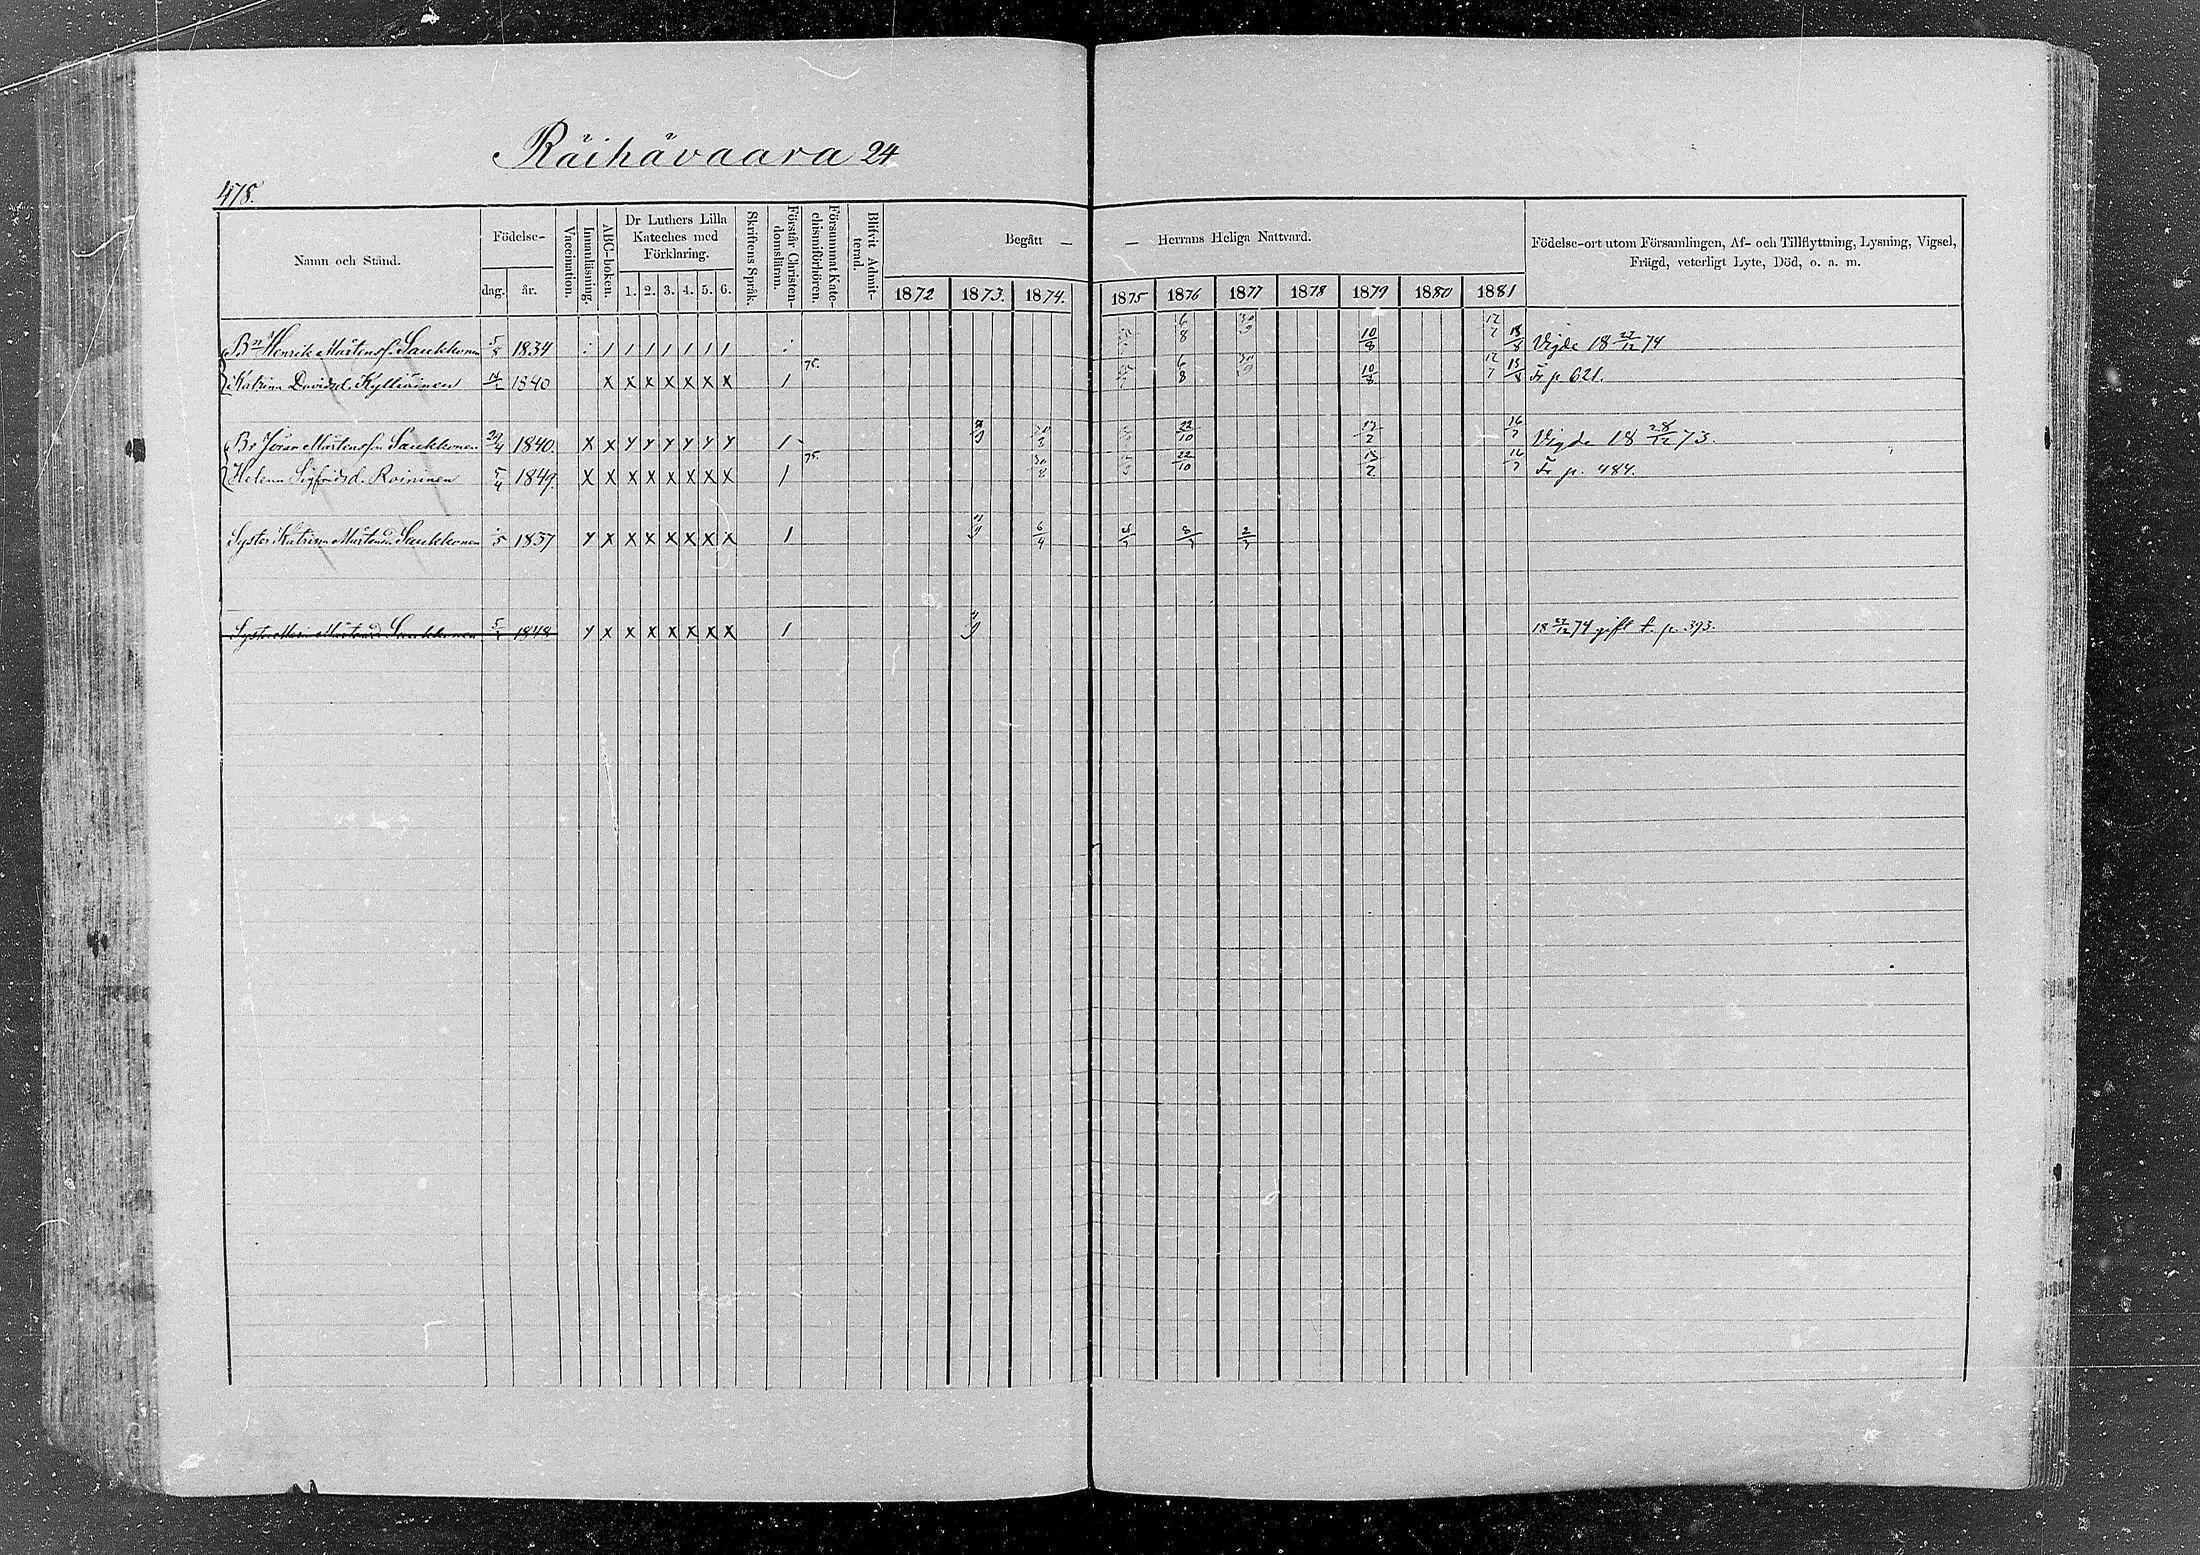 Räihävaara 24
478.
Namn och Stånd.
Födelse-
dag.
år.
Vaccination.
Innanläsning.
ABC-boken.
Dr Luthers Lilla
Kateches med
Förklaring.
1. 2. 3. 4. 5. 6.
Skriftens Språk.
Förstår Christen-
domsläran.
Försummat Kate-
chismiförhören.
Blifvit Admit-
terad.
Begått — — Herrans Heliga Nattvard.
1872 1873. 1874. 1875 1876 1877 1878 1879 1880 1881
Födelse-ort utom Församlingen, Af- och Tillflyttning, Lysning, Vigsel,
Frägd, veterligt Lyte, Död, o. a. m.
Bn Henrik Mårtensf. Saukkonen 5/8 1834 6/8 30/9 10/8 12/7 18/8 Vigde 18 27/12 74
Katrina Davidsd. Kylliäinen 1840 X X X X X X X 1 75. 6/8 30/9 10/8 12/7 Fr p 621.
Br Jöran Mårtensfn Saukkonen 29/4 1840. 1 22/10 16/7 Vigde 18 28/12 73.
Helena Sigfridsd. Roininen 5/4 1849. X X X X X X X X 1 75. 30/8 22/10 16/7 Fr p. 484.
Syster Katrina Mårtensd. Saukkonen 1837 1 6/4 8/7
Syster Maria Mårtensd. Saukkonen 1848 1 18 27/12 74 gift t. p. 393.